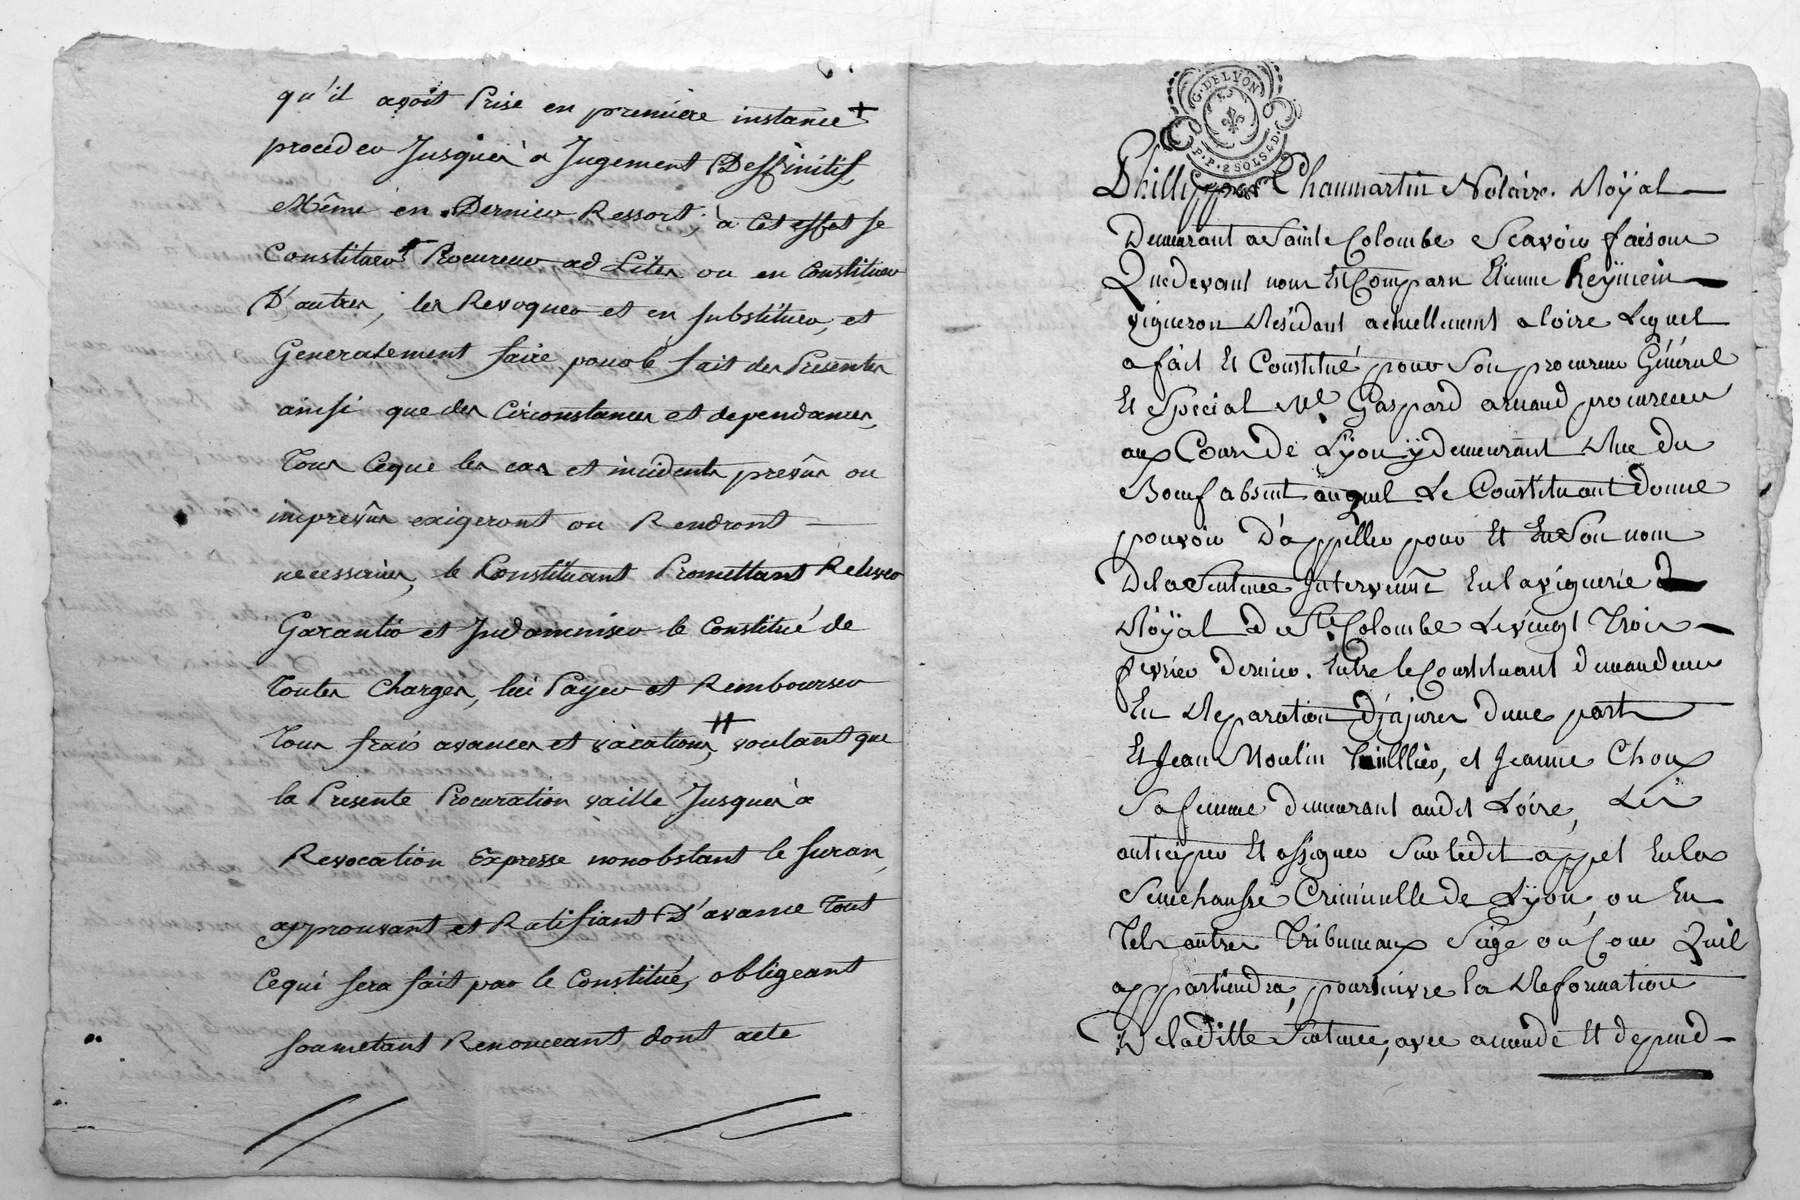 qu'il avoit Prise en premiere instance +
proceder Jusques à Jugement Deffinitif,
Même en Dernier Ressort, à Cet effet se
Constituer Procureur ad Lites ou en Constituer
D'autres, les Revoquer et en substituer, et
Generalement faire pour le fait des Presentes
ainsi que des Circonstances et dependances,
Tous Ceque les cas et incidents prevûs ou
imprevûs exigeront ou Rendront —
necessaires, le Constituant Promettant Relever
Garantir et Indamniser le Constitué de
Toutes Charges, lui Payer et Rembourser
Tous frais avances et vacations, # voulant que
la Presente Procuration vaille Jusques à
Revocation Expresse nonobstant le suran,
approuvant et Ratifiant D'avance Tout
Cequi sera fait par le Constitué, obligeant
soumetant Renonceant dont acte
G. DE LYON
P.P. 2 SOLS LD.
Phillippe Chaumartin Notaire Royal —
Demeurant a Sainte Colombe Scavoir faisons
Quedevant nous Est Comparu Etienne Reymein —
vigneron Residant actuellement a loire Lequel
a fait Et Constitué pour Son procureur Général
Et Special Me Gaspard arnaud procureur
aux Cours de Lyon ÿ demeurant Rue du
Boeuf absent auquel Le Constituant donne
pouvoir D'appeller pour Et En Son nom
Dela Sentence Intervenue En la viguerie
Röyal de Ste Colombe Le vingt Trois —
fevrier dernier. Entre le Constituant demandeur
En Reparation D'injures dune part
Et Jean Moulin Tuillier, et Jeanne Choux
Sa femme demeurant audit Loire, Les
anticiper Et assigner Sur ledit appel En la
Senechaussé Criminelle de Lÿon, ou En
Tels autres Tribuneaux Siege ou Cour Quil
appartiendra, poursuivre la Reformation
De la ditte Sentence, avec amende Et depend —